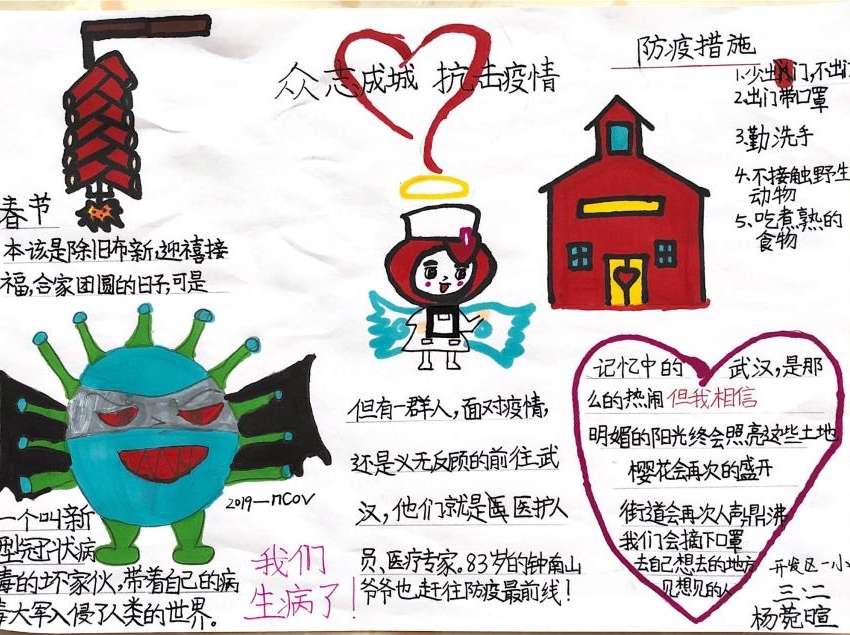 众志成城 抗击疫情
防疫措施
1.少出门,不出门
2.出门带口罩
3.勤洗手
4.不接触野生
动物
5.吃煮熟的
食物
春节
本该是除旧布新,迎禧接
福,合家团圆的日子,可是
2019-nCOV
一个叫新
型冠状病
毒的坏家伙,带着自己的病
毒大军入侵了人类的世界。
我们
生病了!
但有一群人,面对疫情,
还是义无反顾的前往武
汉,他们就是医医护人
员、医疗专家。83岁的钟南山
爷爷也赶往防疫最前线!
记忆中的 武汉,是那
么的热闹 但我相信
明媚的阳光终会照亮这些土地
樱花会再次的盛开
街道会再次人声鼎沸
我们会摘下口罩
去自己想去的地方
见想见的人
开发区一小
三.二
杨菀暄